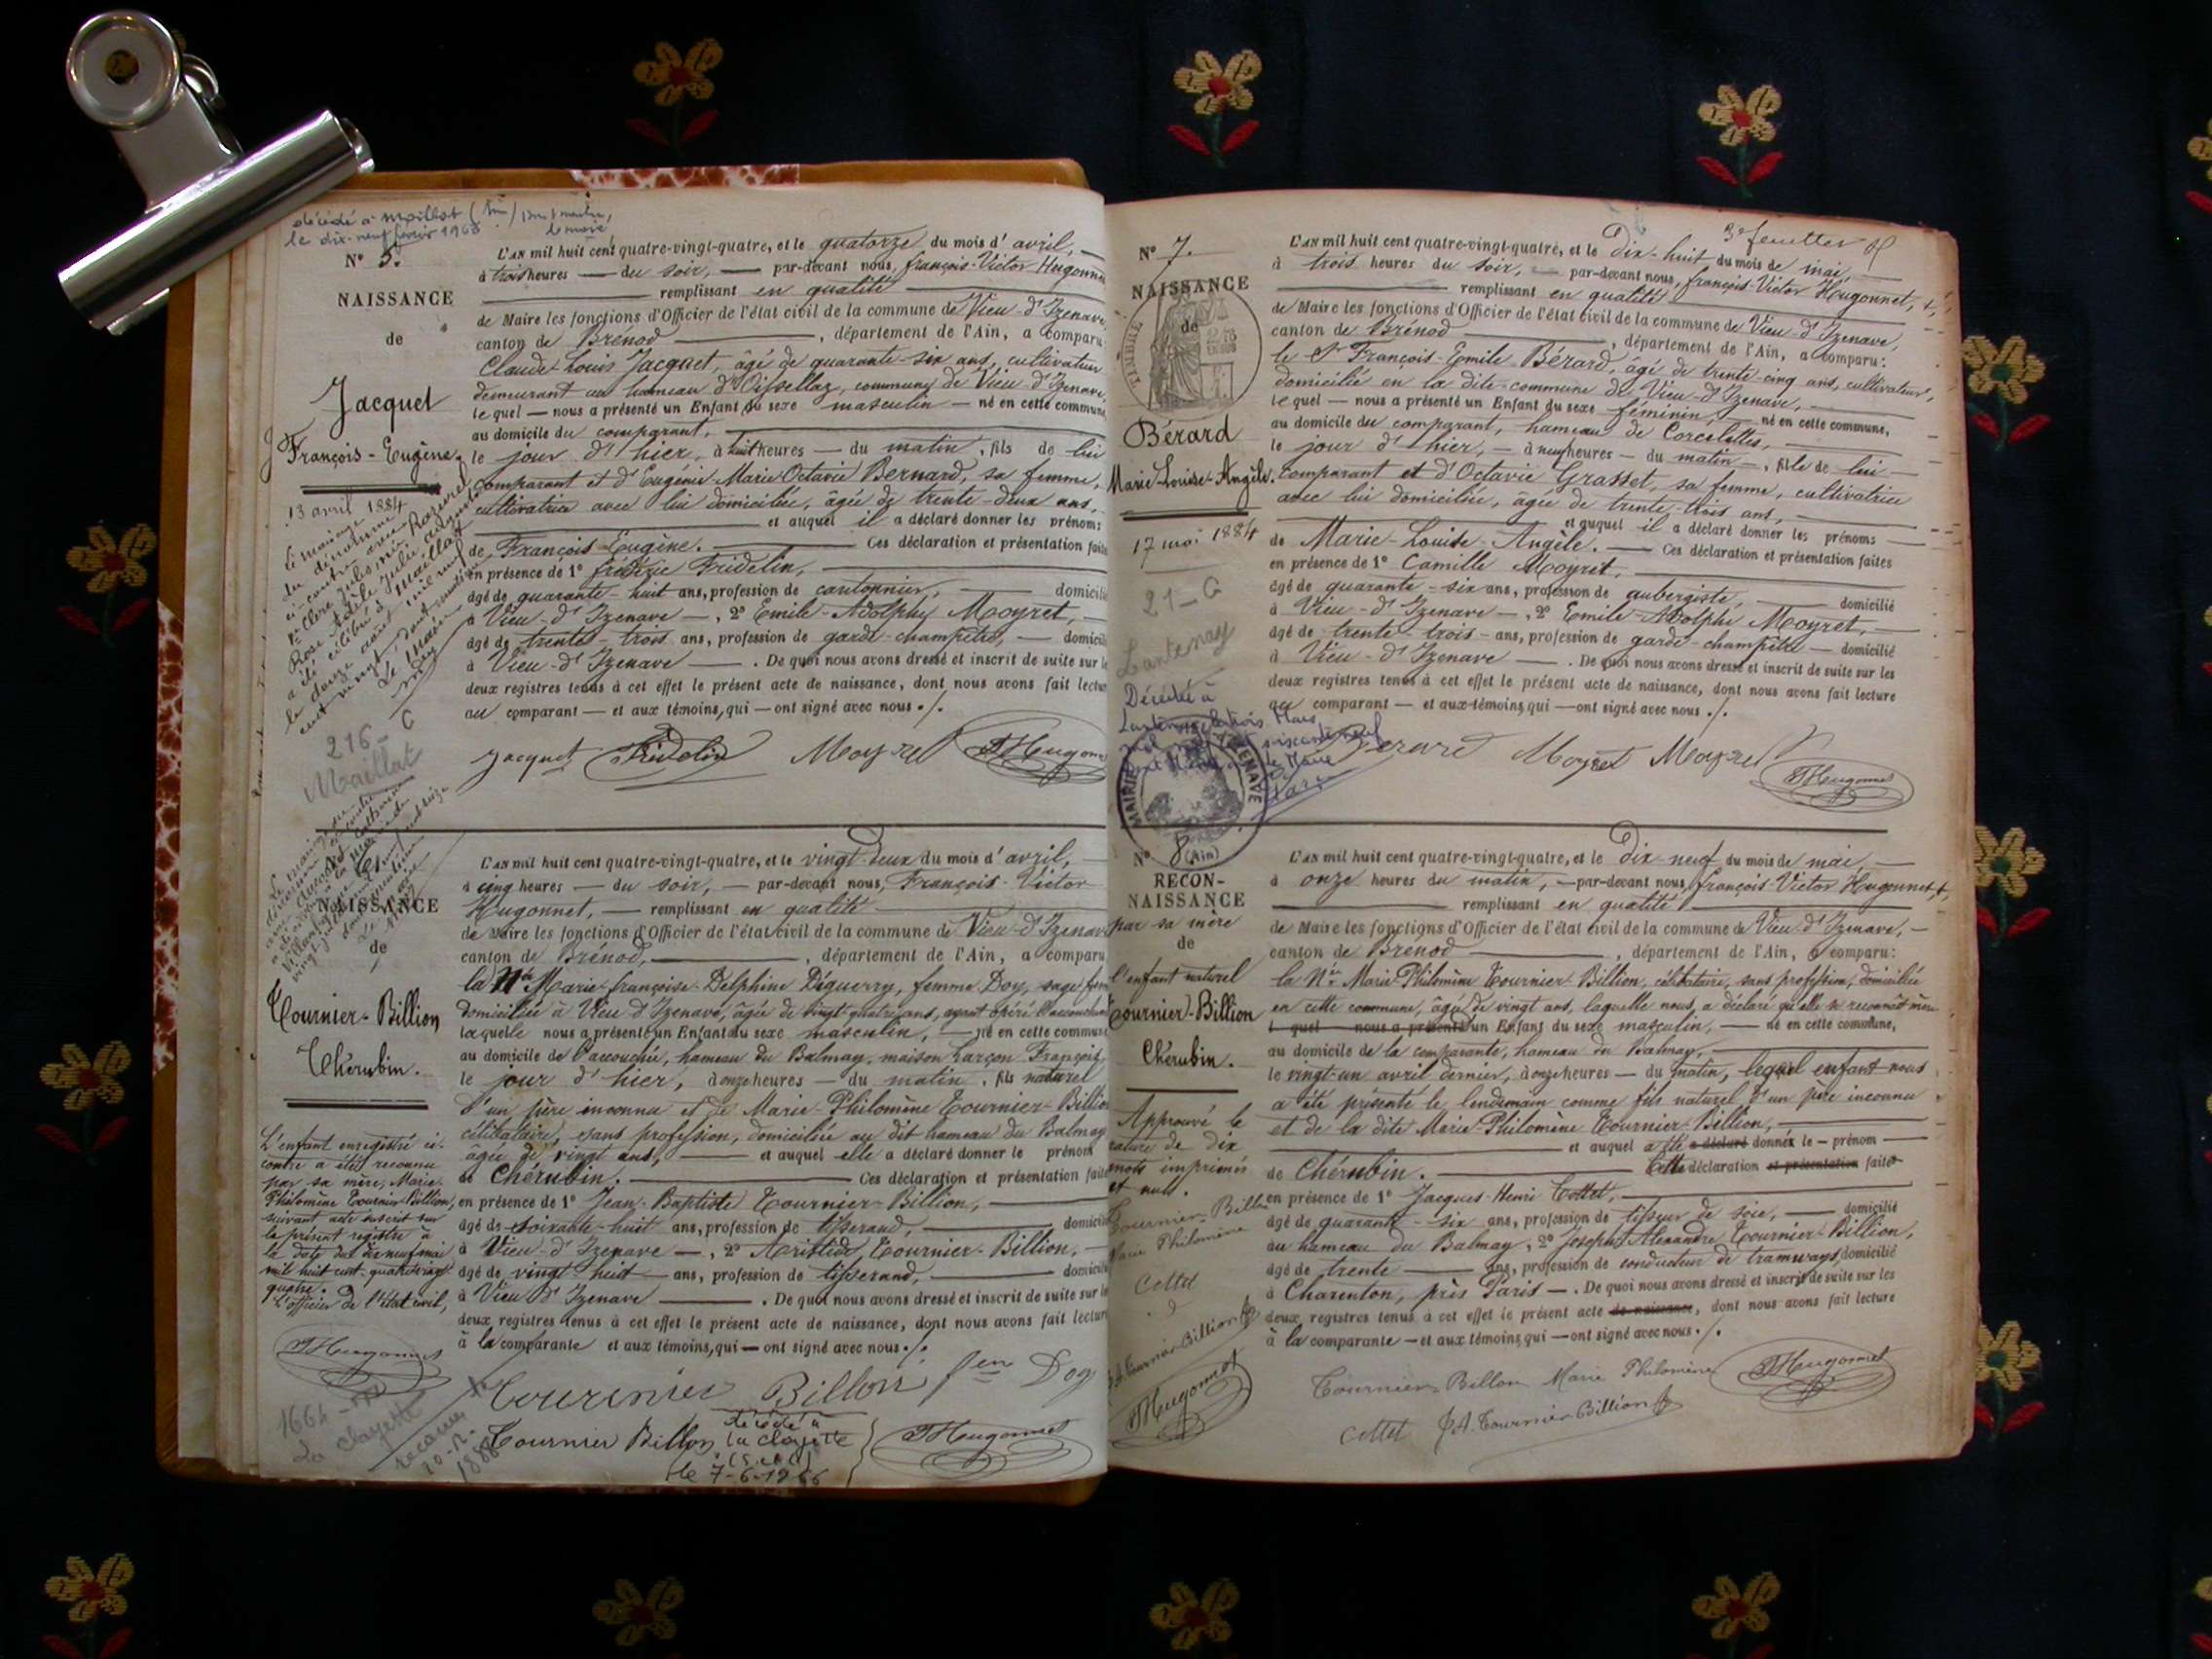 décédé à Maillat
le dix-neuf février 1968
N° 5.
NAISSANCE
de
Jacquet
François-Eugène,
13 avril 1884
216 - C
Maillat
L'AN mil huit cent quatre-vingt-quatre, et le quatorze du mois d'avril,
à trois heures du soir, par-devant nous, françois-Victor Hugonnet
remplissant en qualité
de Maire les fonctions d'Officier de l'état civil de la commune de Vieu-d'Izenave,
canton de Brénod, département de l'Ain, a comparu
Claude-Louis Jacquet, âgé de quarante-six ans, cultivateur
demeurant au hameau d'Oisselaz, commune de Vieu-d'Izenave,
lequel nous a présenté un Enfant du sexe masculin né en cette commune
au domicile du comparant,
le jour d'hier, à huit heures du matin, fils de lui
comparant et d'Eugénie-Marie-Octavie Bernard, sa femme,
cultivatrice avec lui domiciliée, âgée de trente-deux ans,
et auquel il a déclaré donner les prénoms
de François-Eugène. Ces déclaration et présentation faites
en présence de 1° Fridelin,
âgé de quarante-huit ans, profession de cantonnier, domicilié
à Vieu-d'Izenave, 2° Emile-Adolphe Moyret,
âgé de trente-trois ans, profession de garde-champêtre, domicilié
à Vieu-d'Izenave. De quoi nous avons dressé et inscrit de suite sur les
deux registres tenus à cet effet le présent acte de naissance, dont nous avons fait lecture
au comparant et aux témoins, qui ont signé avec nous ./.
Jacquet Fridelin Moyret Hugonnet
NAISSANCE
de
Tournier-Billion
Chérubin.
L'enfant enregistré ci-
contre a été reconnu
par sa mère, Marie-
Philomène Tournier-Billion,
suivant acte inscrit sur
le présent registre à
la date du dix neuf mai
mil huit cent quatre vingt
quatre.
L'officier de l'état civil,
Hugonnet
La Clayette
L'AN mil huit cent quatre-vingt-quatre, et le vingt-deux du mois d'avril,
à cinq heures du soir, par-devant nous, François-Victor
Hugonnet, remplissant en qualité
de Maire les fonctions d'Officier de l'état civil de la commune de Vieu-d'Izenave
canton de Brénod, département de l'Ain, a comparu
la Née Marie-françoise-Delphine Déguerry, femme Doy, sage femme
domiciliée à Vieu d'Izenave, âgée de vingt-quatre ans, ayant opéré l'accouchement
laquelle nous a présenté un Enfant du sexe masculin, né en cette commune
au domicile de l'accouchée, hameau du Balmay, maison Garçon François,
le jour d'hier, à onze heures du matin, fils naturel
d'un père inconnu et de Marie-Philomène Tournier-Billion
célibataire, sans profession, domiciliée au dit hameau du Balmay
âgée de vingt ans, et auquel elle a déclaré donner le prénom
de Chérubin. Ces déclaration et présentation faites
en présence de 1° Jean-Baptiste Tournier-Billion,
âgé de soixante-huit ans, profession de tisserand, domicilié
à Vieu-d'Izenave, 2° Aristide Tournier-Billion,
âgé de vingt huit ans, profession de tisserand, domicilié
à Vieu d'Izenave. De quoi nous avons dressé et inscrit de suite sur les
deux registres tenus à cet effet le présent acte de naissance, dont nous avons fait lecture
à la comparante et aux témoins, qui ont signé avec nous ./.
Tournier Billon fem Doy
Tournier Billon Hugonnet
décédé à
la Clayette
(S. et L.)
le 7-6-1966
3e feuillet
N° 7.
NAISSANCE
de
Bérard
Marie-Louise-Angèle.
17 mai 1884
21 - C
Lantenay
Décédée à
Lantenay le trois Mars
Le Maire
L'AN mil huit cent quatre-vingt-quatre, et le Dix-huit du mois de mai,
à trois heures du soir, par-devant nous, françois-Victor Hugonnet,
remplissant en qualité
de Maire les fonctions d'Officier de l'état civil de la commune de Vieu-d'Izenave,
canton de Brénod, département de l'Ain, a comparu:
le Sr François-Emile Bérard, âgé de trente-cinq ans, cultivateur,
domicilié en la dite commune de Vieu-d'Izenave,
lequel nous a présenté un Enfant du sexe féminin, né en cette commune,
au domicile du comparant, hameau de Corcelettes,
le jour d'hier, à neuf heures du matin, fille de lui
comparant et d'Octavie Grasset, sa femme, cultivatrice
avec lui domiciliée, âgée de trente-trois ans,
et auquel il a déclaré donner les prénoms
de Marie-Louise-Angèle. Ces déclaration et présentation faites
en présence de 1° Camille Moyret,
âgé de quarante-six ans, profession de aubergiste, domicilié
à Vieu-d'Izenave, 2° Emile-Adolphe Moyret,
âgé de trente-trois ans, profession de garde-champêtre domicilié
à Vieu-d'Izenave. De quoi nous avons dressé et inscrit de suite sur les
deux registres tenus à cet effet le présent acte de naissance, dont nous avons fait lecture
au comparant et aux témoins, qui ont signé avec nous ./.
Berard Moyret Moyret Hugonnet
N° 8
RECON-
NAISSANCE
par sa mère
de
l'enfant naturel
Tournier-Billion
Chérubin.
Approuvé la
rature de dix
mots imprimés
et nuls.
Tournier-Billon
Marie Philomène
Cottet
J.A. Tournier-Billion
Hugonnet
L'AN mil huit cent quatre-vingt-quatre, et le dix-neuf du mois de mai,
à onze heures du matin, par-devant nous, françois-Victor Hugonnet,
remplissant en qualité
de Maire les fonctions d'Officier de l'état civil de la commune de Vieu-d'Izenave,
canton de Brénod, département de l'Ain, a comparu:
la Née Marie-Philomène Tournier-Billion, célibataire, sans profession, domiciliée
en cette commune, âgée de vingt ans, laquelle nous a déclaré qu'elle se reconnaît mère
l quel nous a présenté un Enfant du sexe masculin, né en cette commune,
au domicile de la comparante, hameau du Balmay,
le vingt-un avril dernier, à onze heures du matin, lequel enfant nous
a été présenté le lendemain comme fils naturel d'un père inconnu
et de la dite Marie-Philomène Tournier-Billion,
et auquel a été a déclaré donné le prénom
de Chérubin. Cette déclaration et présentation faite
en présence de 1° Jacques-Henri Cottet,
âgé de quarante-six ans, profession de tisseur de soie, domicilié
au hameau du Balmay, 2° Joseph-Alexandre Tournier-Billion,
âgé de trente ans, profession de conducteur de tramways, domicilié
à Charenton, près Paris. De quoi nous avons dressé et inscrit de suite sur les
deux registres tenus à cet effet le présent acte de naissance, dont nous avons fait lecture
à la comparante et aux témoins, qui ont signé avec nous ./.
Tournier-Billon Marie Philomène Hugonnet
Cottet J.A. Tournier-Billion